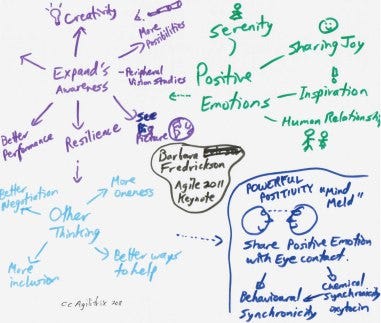 Creativity
More
Possibilities
Expand's
Awareness
- Peripheral
Vision Studies
See
Big
Picture
Better
Performance
Resilience
Serenity
Sharing Joy
Positive
Emotions
Inspiration
Human Relationship
Barbara
Fredrickson
Agile 2011
Keynote
Better
Negotiation
More
oneness
Other
Thinking
More
inclusion
Better ways
to help
POWERFUL
POSITIVITY
"Mind
Meld"
Share Positive Emotion
with Eye contact.
Behavioural
Synchronicity
Chemical
Synchronicity
oxytocin
cc Agilitrix 2011